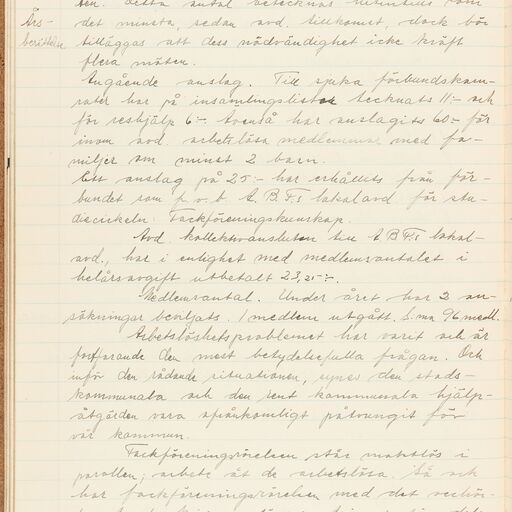 ten. Detta antal betecknas som
Års-
berättelse
det minsta, sedan avd. tillkomst, dock bör
tilläggas att dess nödvändighet icke kräft
flera möten.
Angående anslag. Till sjuka förbundskam-
rater har på insamlingslistor tecknats 11:- och
för reshjälp 6:- har anslagits 60:- för
inom avd. arbetslösa medlemmar med fa-
miljer om minst 2 barn.
Ett anslag på 25:- har erhållits från för-
bundet som A.B.F:s lokalavd. för stu-
diecirkeln: Fackföreningskunskap.
Avd. kollektivansluten till A.B.F:s lokal-
avd., har i enlighet med medlemsantalet i
helårsavgift utbetalt 23,25:-.
Medlemsantal. Under året har 2 an-
sökningar beviljats. 1 medlem utgått. S:ma 96 medl.
Arbetslöshetsproblemet har varit och är
fortfarande den mest betydelsefulla frågan. Och
inför den rådande situationen, synes den stads-
kommunala och den rent kommunala hjälp-
åtgärden vara ofrånkomligt påtvungit för
vår kommun.
Fackföreningsrörelsen står maktlös i
parollen; arbete åt de arbetslösa. Så och
har fackföreningsrörelsen med det